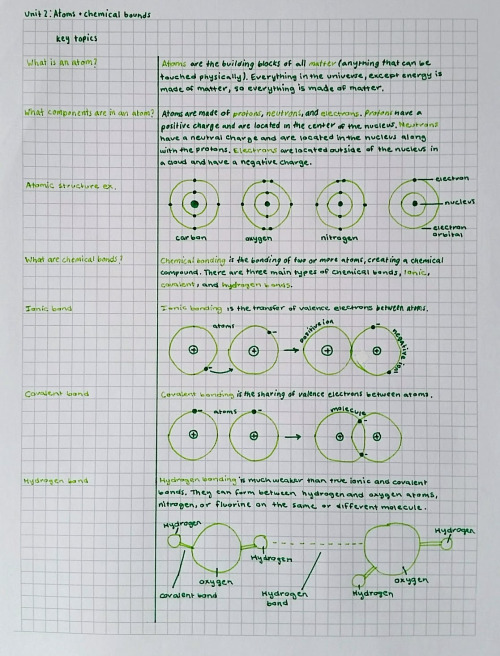 Unit 2: Atoms + chemical bounds
key topics
What is an atom?
Atoms are the building blocks of all matter (anything that can be
touched physically). Everything in the universe, except energy is
made of matter, so everything is made of matter.
What components are in an atom?
Atoms are made of protons, neutrons, and electrons. Protons have a
positive charge and are located in the center of the nucleus. Neutrons
have a neutral charge and are located in the nucleus along
with the protons. Electrons are located outside of the nucleus in
a cloud and have a negative charge.
Atomic structure ex.
carbon
oxygen
nitrogen
electron
nucleus
electron
orbital
What are chemical bonds?
Chemical bonding is the bonding of two or more atoms, creating a chemical
compound. There are three main types of chemical bonds, ionic,
covalent, and hydrogen bonds.
Ionic bond
Ionic bonding is the transfer of valence electrons between atoms.
atoms
positive ion
negative ion
Covalent bond
Covalent bonding is the sharing of valence electrons between atoms.
atoms
molecule
Hydrogen bond
Hydrogen bonding is much weaker than true ionic and covalent
bonds. They can form between hydrogen and oxygen atoms,
nitrogen, or fluorine on the same or different molecule.
Hydrogen
Hydrogen
oxygen
covalent bond
Hydrogen
bond
Hydrogen
oxygen
Hydrogen